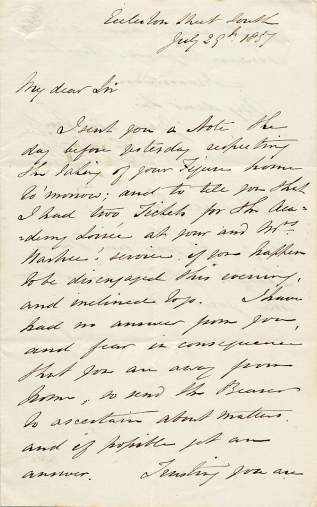 Eccleston Street South
July 29th 1857
My dear Sir
I sent you a Note the
day before yesterday respecting
the taking of your Figures home
to'morrow; and to tell you that
I had two Tickets for the Aca-
=demy Soiree at your and Mrs
service if you happen
to be disengaged this evening,
and inclined to go. I have
had no answer from you,
and fear in consequence
that you are away from
home, so send the Bearer
to ascertain about matters
and if possible get an
answer. Trusting you are